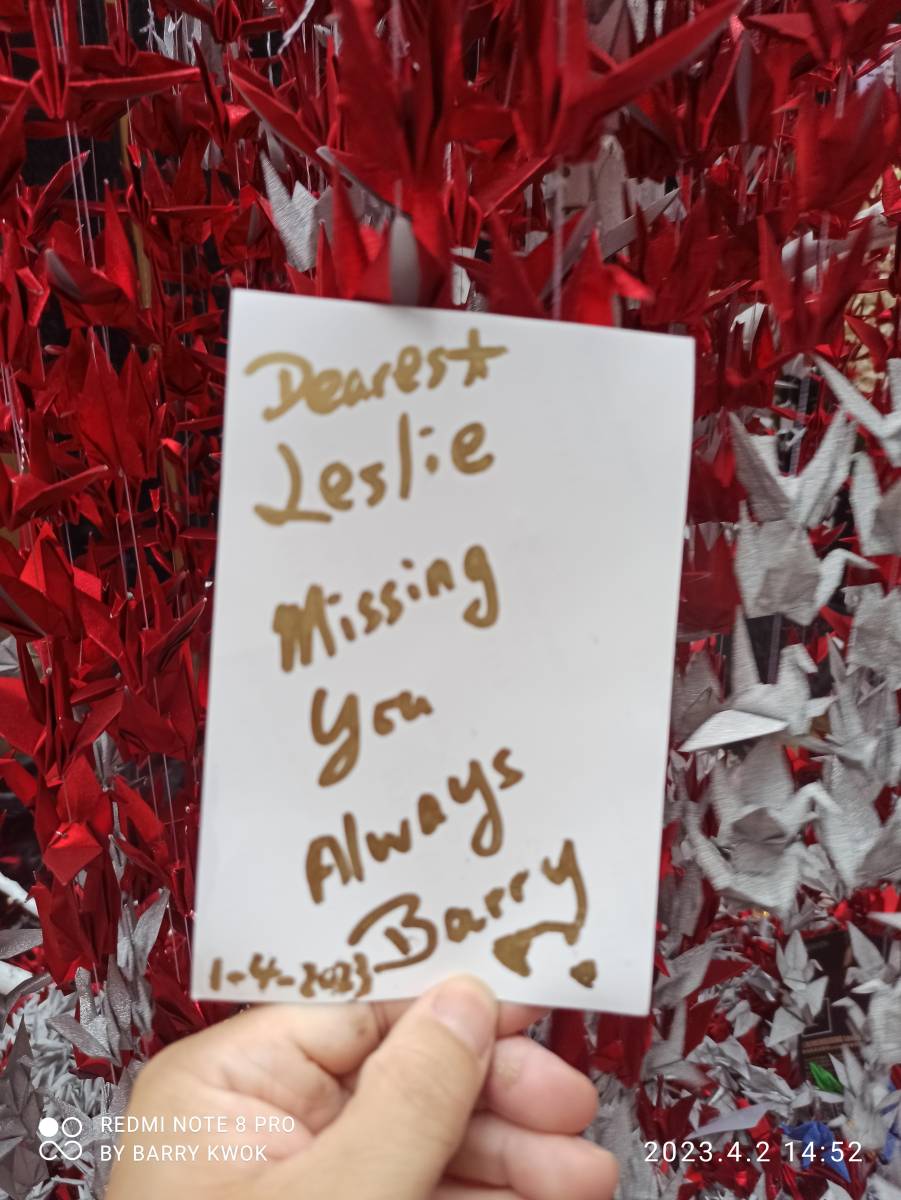 Dearest
Leslie
Missing
You
Always
Barry
1-4-2023
REDMI NOTE 8 PRO
BY BARRY KWOK
2023.4.2 14:52